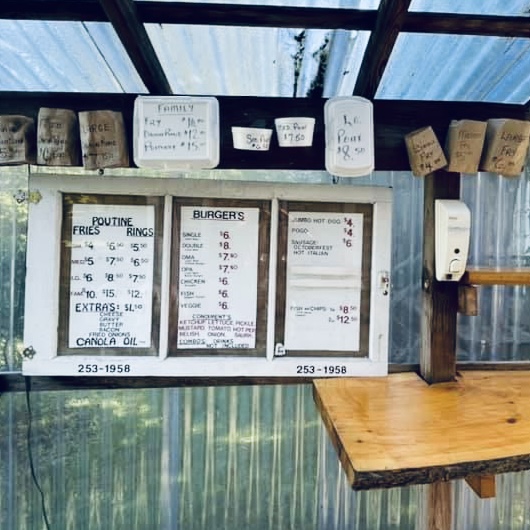 FAMILY
FRY
POUTINE
LG.
POUT
$8.50
LARGE
POUTINE
FRIES RINGS
SM. $4. $6.00 $5.50
MED $5. $7.50 $6.50
LG. $6. $8.50 $7.50
FAM $10. $15. $12.
EXTRAS: $1.50
CHEESE
GRAVY
BUTTER
BACON
FRIED ONIONS
CANOLA OIL
BURGER'S
SINGLE $6.
DOUBLE $8.
OMA $7.50
OPA $7.50
CHICKEN $6.
FISH $6.
VEGGIE $6.
CONDIMENT'S
KETCHUP LETTUCE PICKLE
MUSTARD TOMATO HOT PEP
RELISH, ONION,
COMBO'S DRINKS
NOT INCLUDED
JUMBO HOT DOG $4.
POGO $4.
SAUSAGE: $6
OCTOBERFEST
HOT ITALIAN
FISH N CHIPS $8.50
L. $12.50
253-1958
253-1958